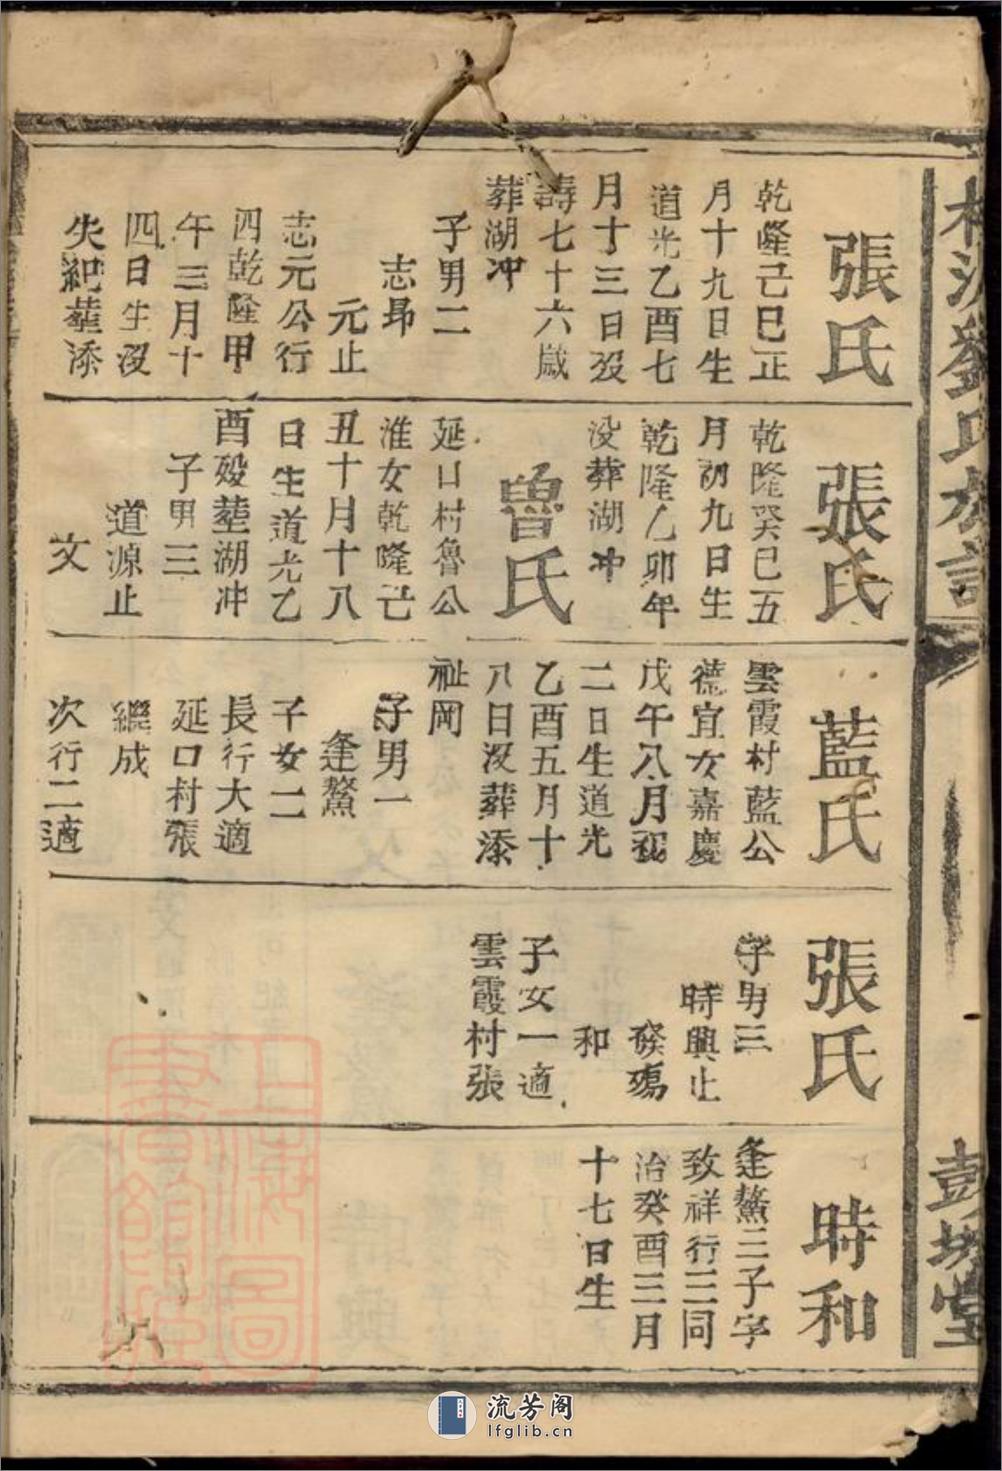 劉氏
彭城堂
張氏
乾隆己巳正
月十九日生
道光乙酉七
月十三日歿
壽七十六歲
葬湖冲
子男二
志昻
元止
志元公行
四乾隆甲
午三月十
四日生沒
失紀塟漆
張氏
乾隆癸巳五
月初九日生
乾隆乙卯年
没葬湖冲
魯氏
延口村魯公
淮女乾隆己
丑十月十八
日生道光乙
酉歿塟湖冲
子男三
道源止
文
藍氏
雲霞村藍公
德宜女嘉慶
戊午八月初
二日生道光
乙酉五月十
八日沒葬漆
祉岡
子男一
逢鰲
子女二
長行大適
延口村張
繼成
次行二適
張氏
子男三
時興止
發殤
和
子女一適
雲霞村張
時和
逢鰲三子字
致祥行三同
治癸酉三月
十七日生
上海圖
書館藏
流芳阁
lfglib.cn